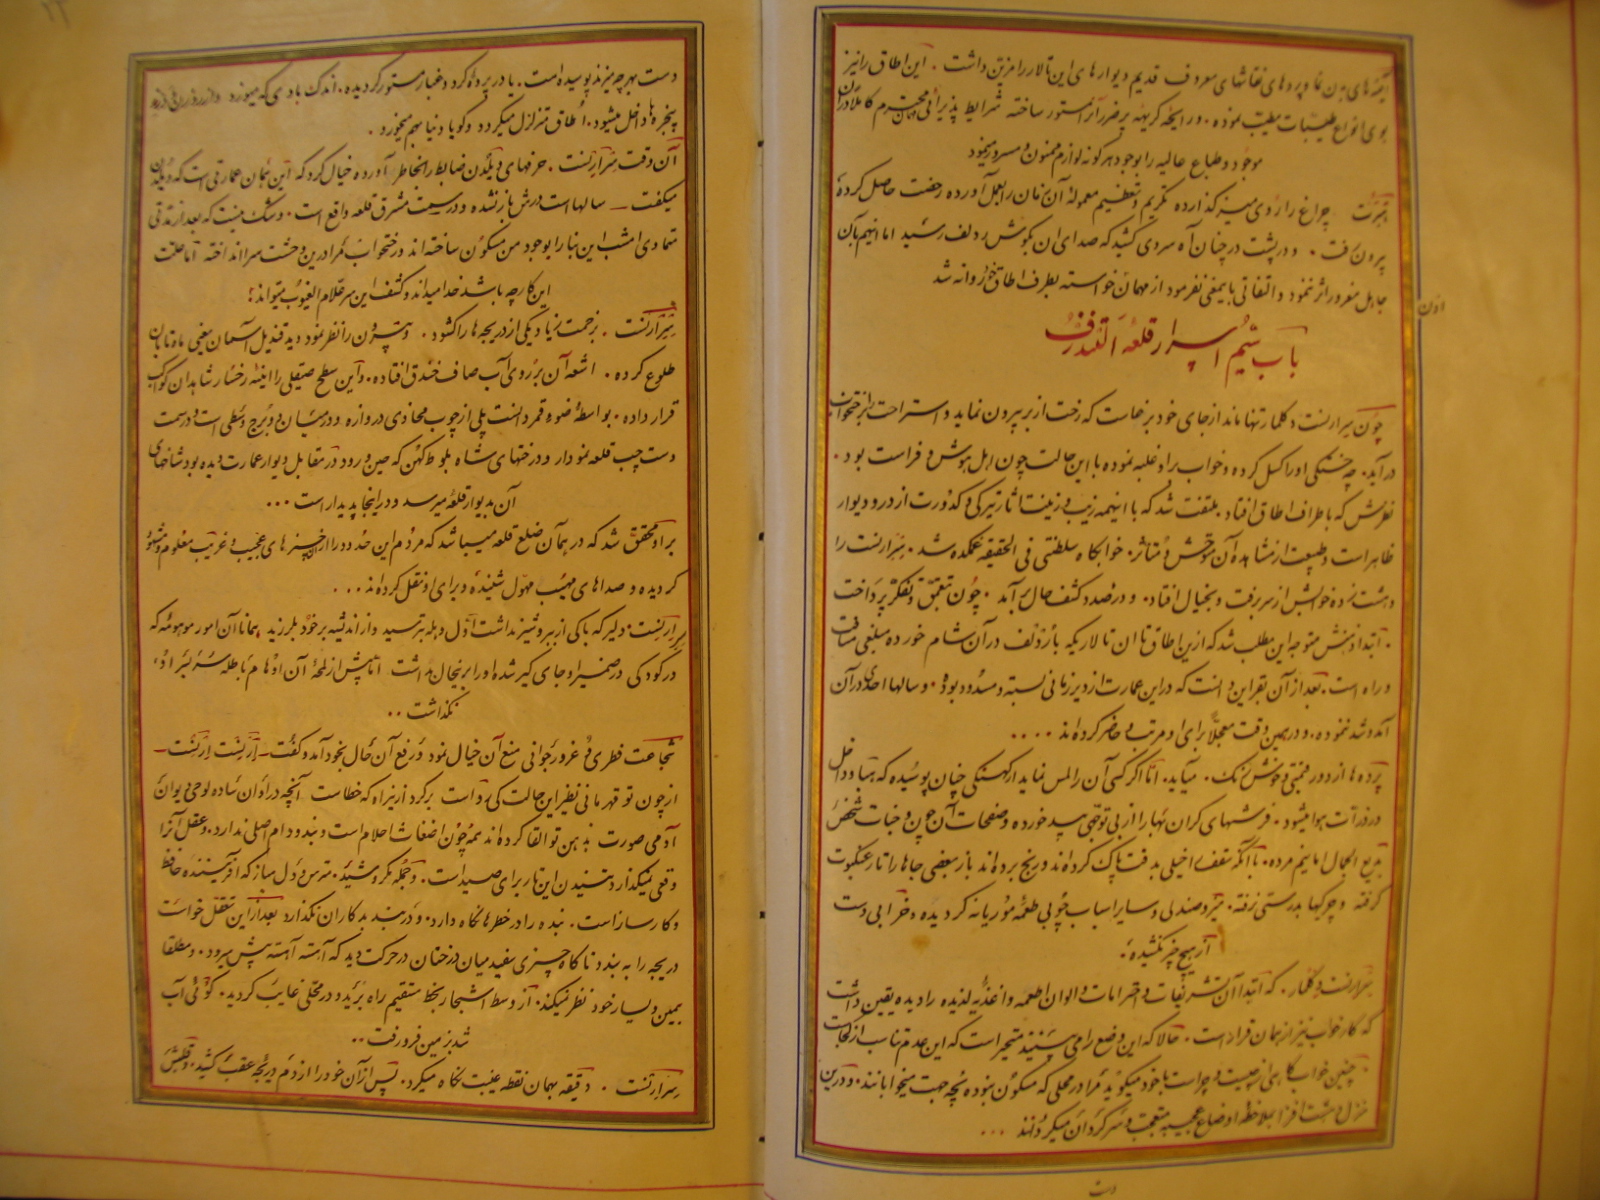 این اطاق را نیز
بوی انواع طیبات مطیب نموده. و رایحه کریهه پر ضرر آنرا مستور ساخته شرایط پذیرائی مهمان محترم کاملا در آن
موجود و طباع عالیه را بوجود هر گونه لوازم ممنون و مسرور مینمود
چراغ را روی میز گذارده تکریم و تعظیم معموله آن زمان را بعمل آورده رخصت حاصل کرده
بیرون رفت. و در پشت در چنان آه سردی کشید که صدای آن بگوش ردلف رسید اما اینهم بآن
جاهل مغرور اثر ننمود و التفاتی بایمعنی نفرمود از مهمان خواسته بطرف اطاق خود روانه شد
باب ششم اسرار قلعه
چون سرارنست دکلمار تنها ماند از جای خود برخاست که رخت از بر بیرون نماید و استراحت را برختخواب
در آید. چه خستگی او را کسل کرده و خواب بر او غلبه نموده با این حالت چون اهل هوش و فراست بود.
نظرش که باطراف اطاق افتاد. ملتفت شد که با اینهمه زیب و زینت آثار تیرگی و کدورت از در و دیوار
ظاهر است و طبیعت از مشاهده آن متوحش و متاثر. خوابگاه سلطنتی فی الحقیقه غمکده شد. سرارنست را
وحشت زده خوابش از سر برفت و بخیال افتاد. و در صدد کشف حال برآمد. چون تعمق و تفکر پرداخت
. ابتدا ذهنش متوجه این مطلب شد که ازین اطاق تا آن تالاریکه با ردلف در آن شام خورده مبلغی مسافت
و راه است. بعد از آن بقراین دانست که در این عمارت از دیر زمانی بسته و مسدود بوده. و سالها احدی در آن
آمد و شد ننموده. و در همین وقت معجلا برای او مرتب و حاضر کرده اند ....
پرده ها از دور قیمتی و خوش رنگ. میآید. اما اگر کسی آن را لمس نماید از کهنگی چنان پوسیده که هبا و داخل
در ذرات هوا میشود. فرشهای گران بها را از بی توجهی بید خورده و صفحات آن چون وجنات شخص
بدیع الجمال اما نیم مرده. با آنکه سقف را خیلی بدقت پاک کرده اند و رنج برده اند باز بعضی جاها را تار عنکبوت
گرفته و چرکها بدرستی نرفته. میز و صندلی و سایر اسباب چوبی طعمه موریانه گردیده و خرابی دست
از هیچ چیز نکشیده.
سرارنست دکلمار. که ابتدا آن تشریفات و احترامات و الوان اطعمه و اغذیه لذیذه را دیده یقین داشت
که کار خواب نیز از همان قرار است. حالا که این وضع را می بیند متحیر است که این عدم تناسب از کجاست
. چنین خوابگاهی از چیست و چراست با خود میگوید مرا در محلی که مسکون نبوده بچه جهت میخوابانند. و درین
منزل وحشت افزا بملاحظه اوضاع عجیبه متعجب و سرگردان میگردانند ...
دست
دست بهر چیز نهد پوسیده است. یا در پرده گرد و غبار مستور گردیده. اندک بادی که میوزد
پنجره ها داخل میشود. اطاق متزلزل میگردد و گویا دنیا بهم میخورد.
آن وقت سرارنست. حرفهای دیلدن ضابط را بخاطر آورده خیال کرد که این همان عمارتی است که دیلدن
میگفت ـ سالها است درش باز نشده و در سمت مشرق قلعه واقع است. و شک نیست که بعد از مدتی
متمادی امشب این بنا را بوجود من مسکون ساخته اند و رختخواب مرا درین وحشت سرا انداخته اما علت
این کار چه باشد خدا میداند و کشف این سر علام الغیوب میتواند؛
سرارنست. بزحمت زیاد یکی از دریچه ها را گشود. و بیرون را نظر نمود دید قندیل آسمان یعنی ماه تابان
طلوع کرده. اشعه آن بر روی آب صاف خندق افتاده. و این سطح صیقلی را آینه رخسار شاهدان کواکب
قرار داده. بواسطه ضوء قمر دانست پلی از چوب محاذی دروازه و در میان دو برج وسطی است و در سمت
دست چپ قلعه نمودار و درختهای شاه بلوط کهن که حین ورود در مقابل دیوار عمارت دیده بود شاخهای
آن بدیوار قلعه میرسد و در اینجا پدیدار است ...
بر او محقق شد که در همان ضلع قلعه میباشد که مردم این حدود را از آن چیزهای عجیب و غریب معلوم و مشهود
گردیده و صداهای مهیب مهول شنیده و برای او نقل کرده اند ...
سرارنست. دلیر که باکی از ببر و شیر نداشت اول وهله بترسید و از اندیشه بر خود بلرزید همانا آن امور موهومه که
در کودکی در ضمیر او جای گیر شده او را بر بخیال داشت اما پیش از لمحه آن اوهام باطله بسر او
نگذاشت ..
شجاعت فطری و غرور جوانی منع آن خیال نمود و رفع آن حال بخود آمد و گفت ـ ارنست ارنست ـ
از چون تو قهرمانی نظیر این حالت کی رواست برگرد زیرا که خطاست آنچه در اوان ساده لوحی دیوان
آدمی صورت بذهن تو القا کرده اند همه چون اضغاث احلام است و بنیاد و دام اصلی ندارد. و عقل آنرا
وقعی نمیگذارد تنیدن این تار برای صید است. و جمله مکر و شید. مترس و دل مباز که آفریننده حافظ
و کارساز است. بنده را در خطرها نگاه دارد. و در بند بدکاران نگذارد بعد از این تعقل خواست
دریچه را به بندد ناگاه چیزی سفید میان درختان در حرکت دید که آهسته آهسته پیش میرود. و مطلقا
بیمین و یسار خود نظر نمیکند. از وسط اشجار بخط مستقیم راه برید و در محلی غایب گردید. گوئی آب
شد بزمین فرو رفت ..
سرارنست. دقیقه بهمان نقطه غیبت نگاه میکرد. پس از آن خود را از دم دریچه عقب کشید.